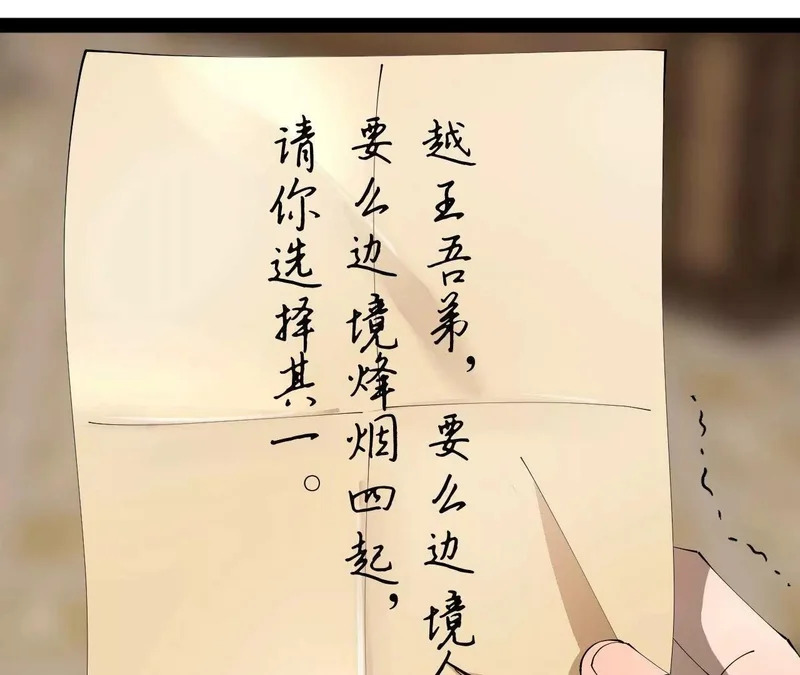 越王吾弟，要么边境
要么边境烽烟四起，
请你选择其一。